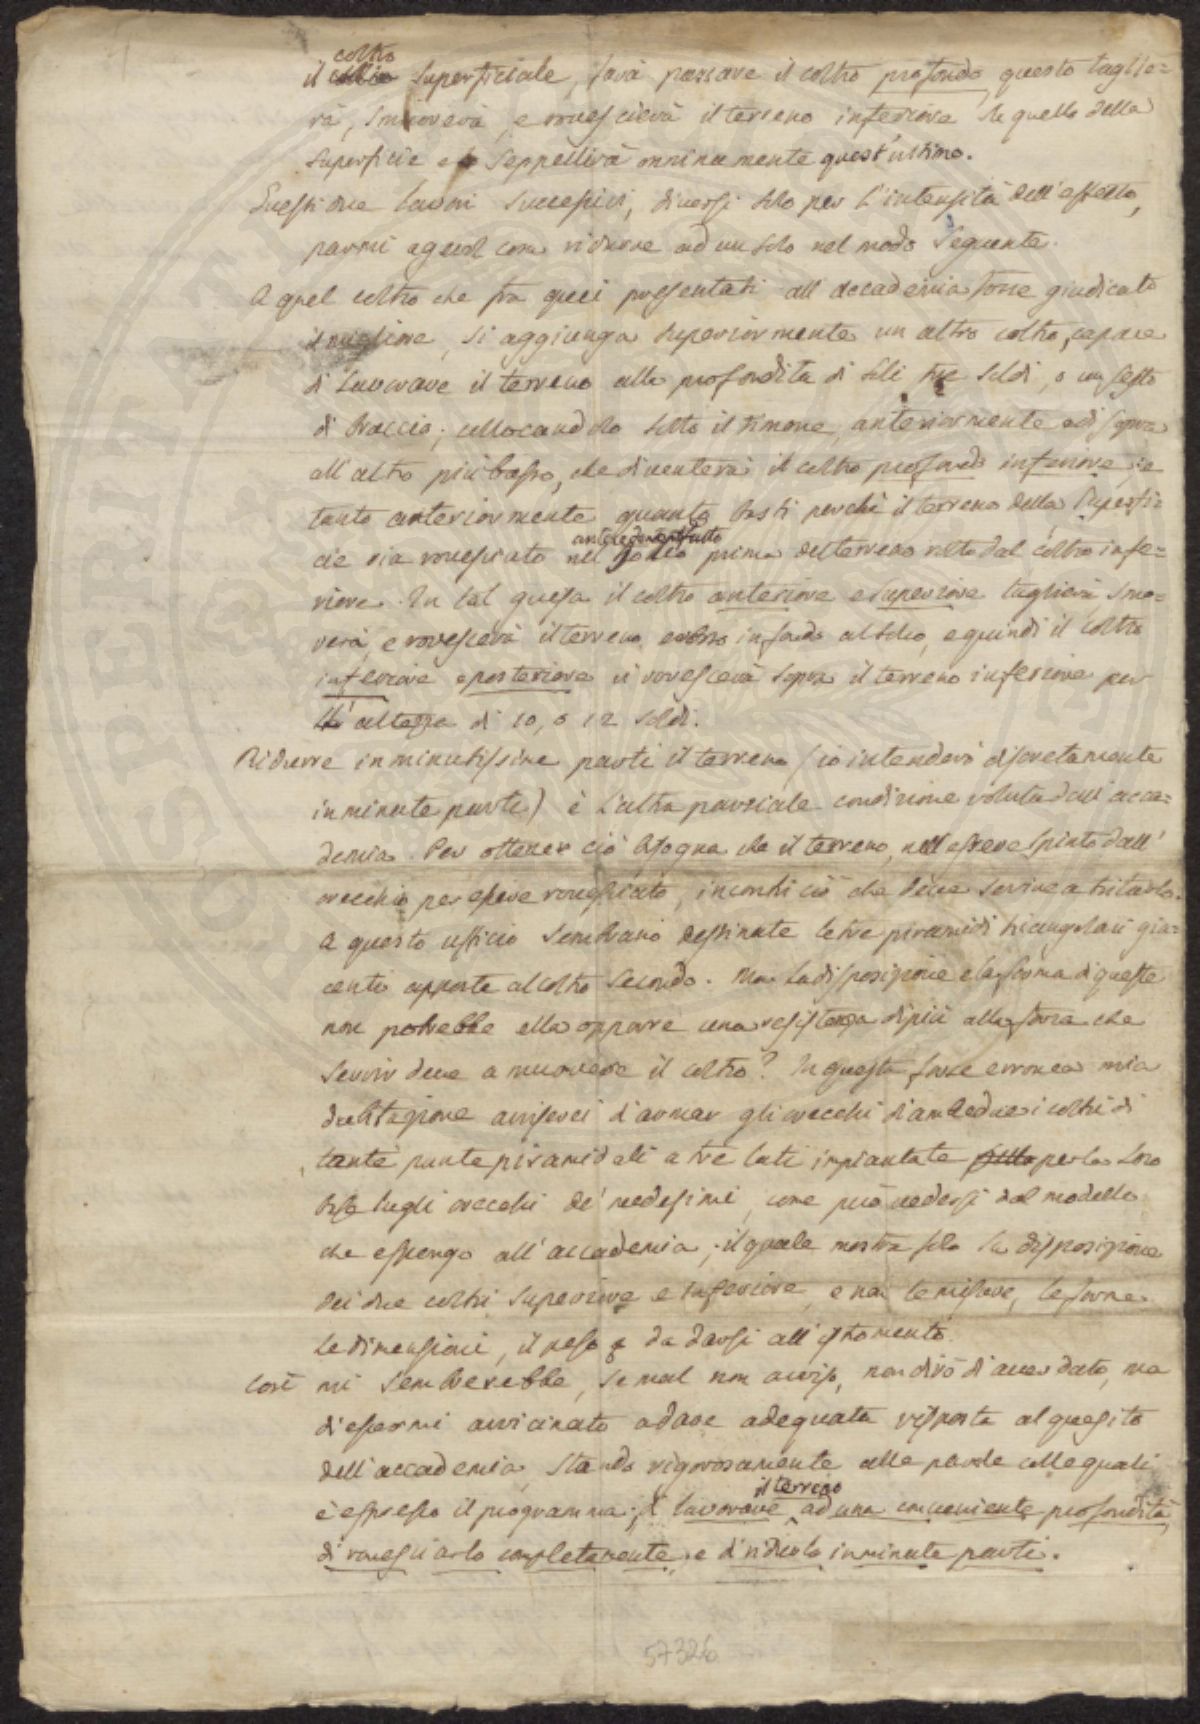 coltro
il superficiale, farà passare il coltro profondo, questo taglie=
rà, smuoverà, e rovescierà il terreno inferiore su quello della
superficie e seppellirà onninamente quest'ultimo.
Questi due lavori successivi, diversi solo per l'intensità dell'effetto,
parmi cosa ridurre ad un solo nel modo seguente.
A quel coltro che fra quei presentati all'accademia fosse giudicato
il migliore, si aggiunga superiormente un altro coltro, capace
di lavorare il terreno alla profondità di soli tre soldi, o un sesto
di braccio; collocandolo sotto il timone, anteriormente e di sopra
all'altro più basso, che diventerà il coltro profondo inferiore; e
tanto anteriormente quanto basti perchè il terreno della superfi=
antecedentemente fatto
cie sia rovesciato nel solco prima del terreno rotto dal coltro infe=
riore. In tal guisa il coltro anteriore e superiore taglierà, smo=
verà, e rovescerà il terreno in fondo al solco, e quindi il coltro
inferiore e posteriore vi rovescerà sopra il terreno inferiore per
l'altezza di 10, o 12 soldi.
Ridurre in minutissime parti il terreno (io intenderò discretamente
in minute parti) è l'altra parziale condizione voluta dall'acca=
demia. Per ottener ciò bisogna che il terreno, nell'essere spinto dall'
orecchio per essere rovesciato, incontri ciò che deve servire a tritarlo.
A questo ufficio sembrano destinate le tre piramidi triangolari gia=
centi apposte al coltro secondo. Ma la disposizione e la forma di queste
non potrebbe ella opporre una resistenza di più alla forza che
servir deve a muovere il coltro? In questa forse erronea mia
dubitazione amerei d'armar gli orecchi d'ambedue i coltri di
tante punte piramidali a tre lati impiantate per la loro
base sugli orecchi de' medesimi, come può vedersi dal modello
che espongo all'accademia; il quale mostra solo la disposizione
dei due coltri superiore e inferiore, e non le misure, le forme
le dimensioni, il peso da darsi all'istromento.
Così mi sembrerebbe, se mal non avviso, non dirò di aver dato, ma
d'essermi avvicinato a dare adeguata risposta al quesito
dell'accademia, stando rigorosamente alle parole colle quali
il terreno
è espresso il programma; di lavorare ad una conveniente profondità,
di rovesciarlo completamente, e di ridurlo in minute parti.
57326